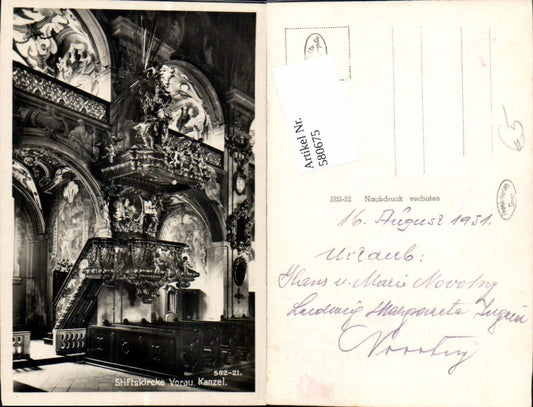 582-21.
Stiftskirche Vorau, Kanzel.
Artikel Nr.
580675
65
1951-52 Nachdruck verboten
16. August 1951.
Urlaub:
Hans u. Marie Novotny
Ludwig Margareta Ingrid
Novotny